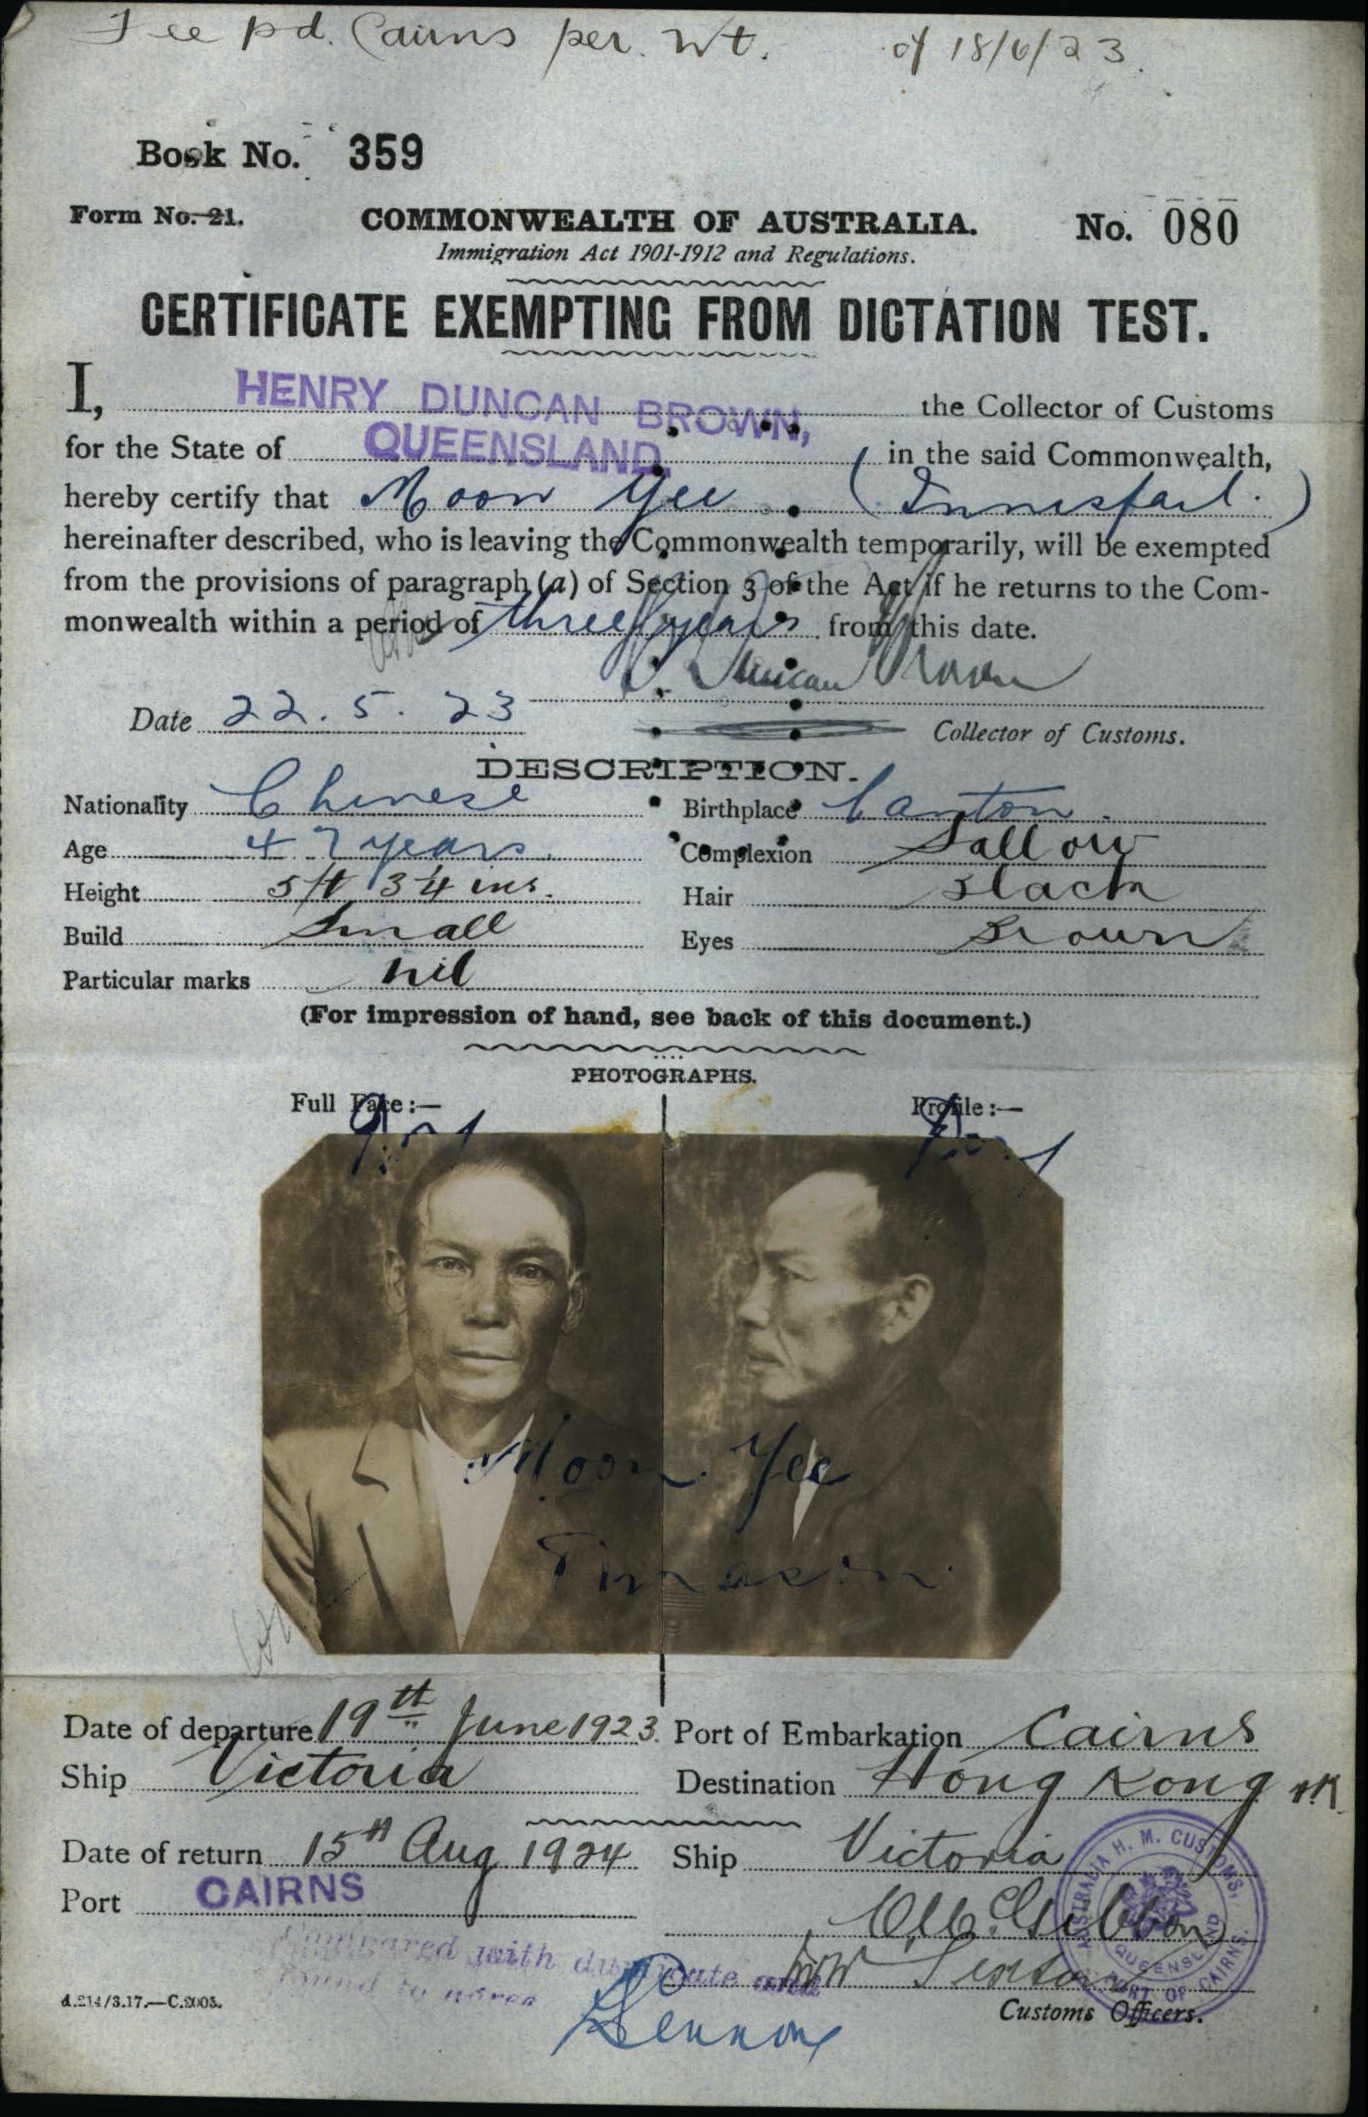 Fee pd. Cairns per. Wt. of 18/6/23.
Book No. 359
Form No. 21.
COMMONWEALTH OF AUSTRALIA.
No. 080
Immigration Act 1901-1912 and Regulations.
CERTIFICATE EXEMPTING FROM DICTATION TEST.
I, HENRY DUNCAN BROWN, the Collector of Customs
for the State of QUEENSLAND, in the said Commonwealth,
hereby certify that Moon Yee (Innisfail.)
hereinafter described, who is leaving the Commonwealth temporarily, will be exempted
from the provisions of paragraph (a) of Section 3 of the Act if he returns to the Com-
monwealth within a period of three years from this date.
H Duncan Brown
Date 22.5.23
Collector of Customs.
DESCRIPTION.
Nationality Chinese Birthplace Canton.
Age 47 years. Complexion Sallow
Height 5 ft 3 1/4 ins. Hair Black
Build Small Eyes Brown
Particular marks nil
(For impression of hand, see back of this document.)
PHOTOGRAPHS.
Full Face:— Profile:—
Moon Yee
Date of departure 19th June 1923. Port of Embarkation Cairns
Ship Victoria Destination Hong Kong
Date of return 15th Aug 1924 Ship Victoria
Port CAIRNS
Compared with duplicate and
found to agree
AUSTRALIA H. M. CUSTOMS, QUEENSLAND PORT OF CAIRNS.
d.214/3.17.—C.2005.
Customs Officers.